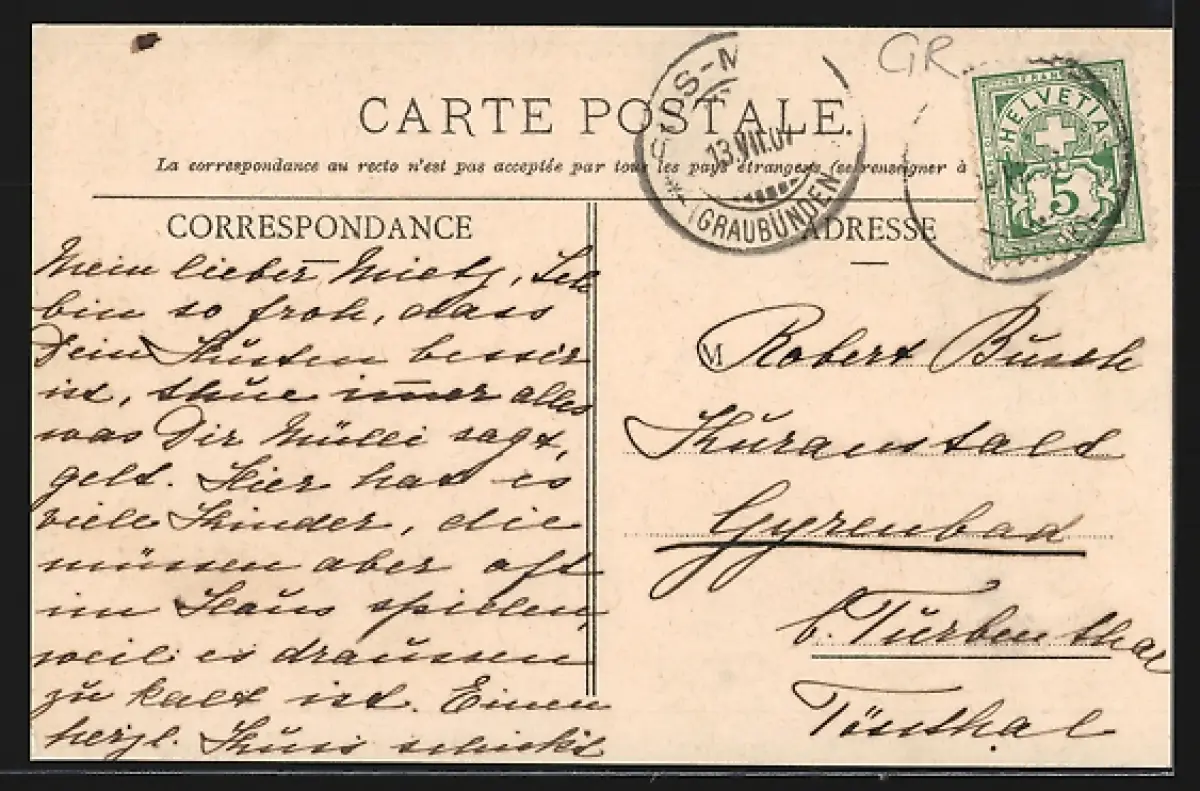 GR
CARTE POSTALE.
La correspondance au recto n'est pas acceptée par tous les pays étrangers (se renseigner à
S-M
13.VII.07
(GRAUBÜNDEN)
FRANCO
HELVETIA
5
CORRESPONDANCE
Mein lieber Mietz, Ich
bin so froh, dass
Dein Husten besser
ist, thue imer alles
was Dir Mülli sagt,
gelt. Hier hat es
viele Kinder, die
müssen aber oft
im Haus spielen,
weil es draussen
zu kalt ist. Einen
herzl. Kuss schickt
ADRESSE
M Robert Busch
Kuranstalt
Gyrenbad
b. Turbenthal
Tössthal